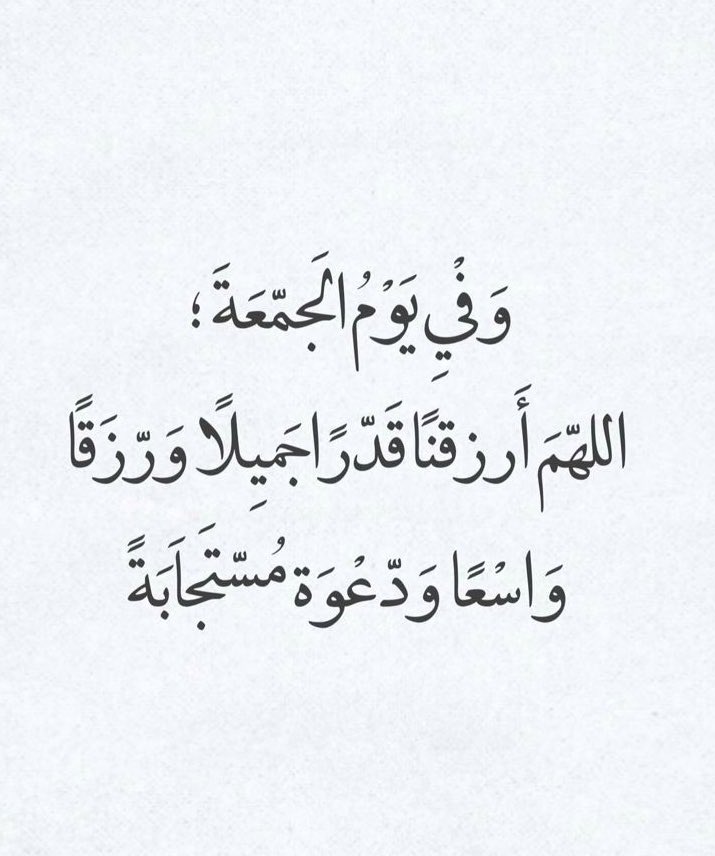 وَفْيِ يَوْمُ الَجمّعَةَ ؛
اللهّمَ أَرزقنًا قَدّرًا جَمِيلًا وَرّزَقًا
وَاسْعًا وَدّعْوَة مُسّتَجاَبَةً